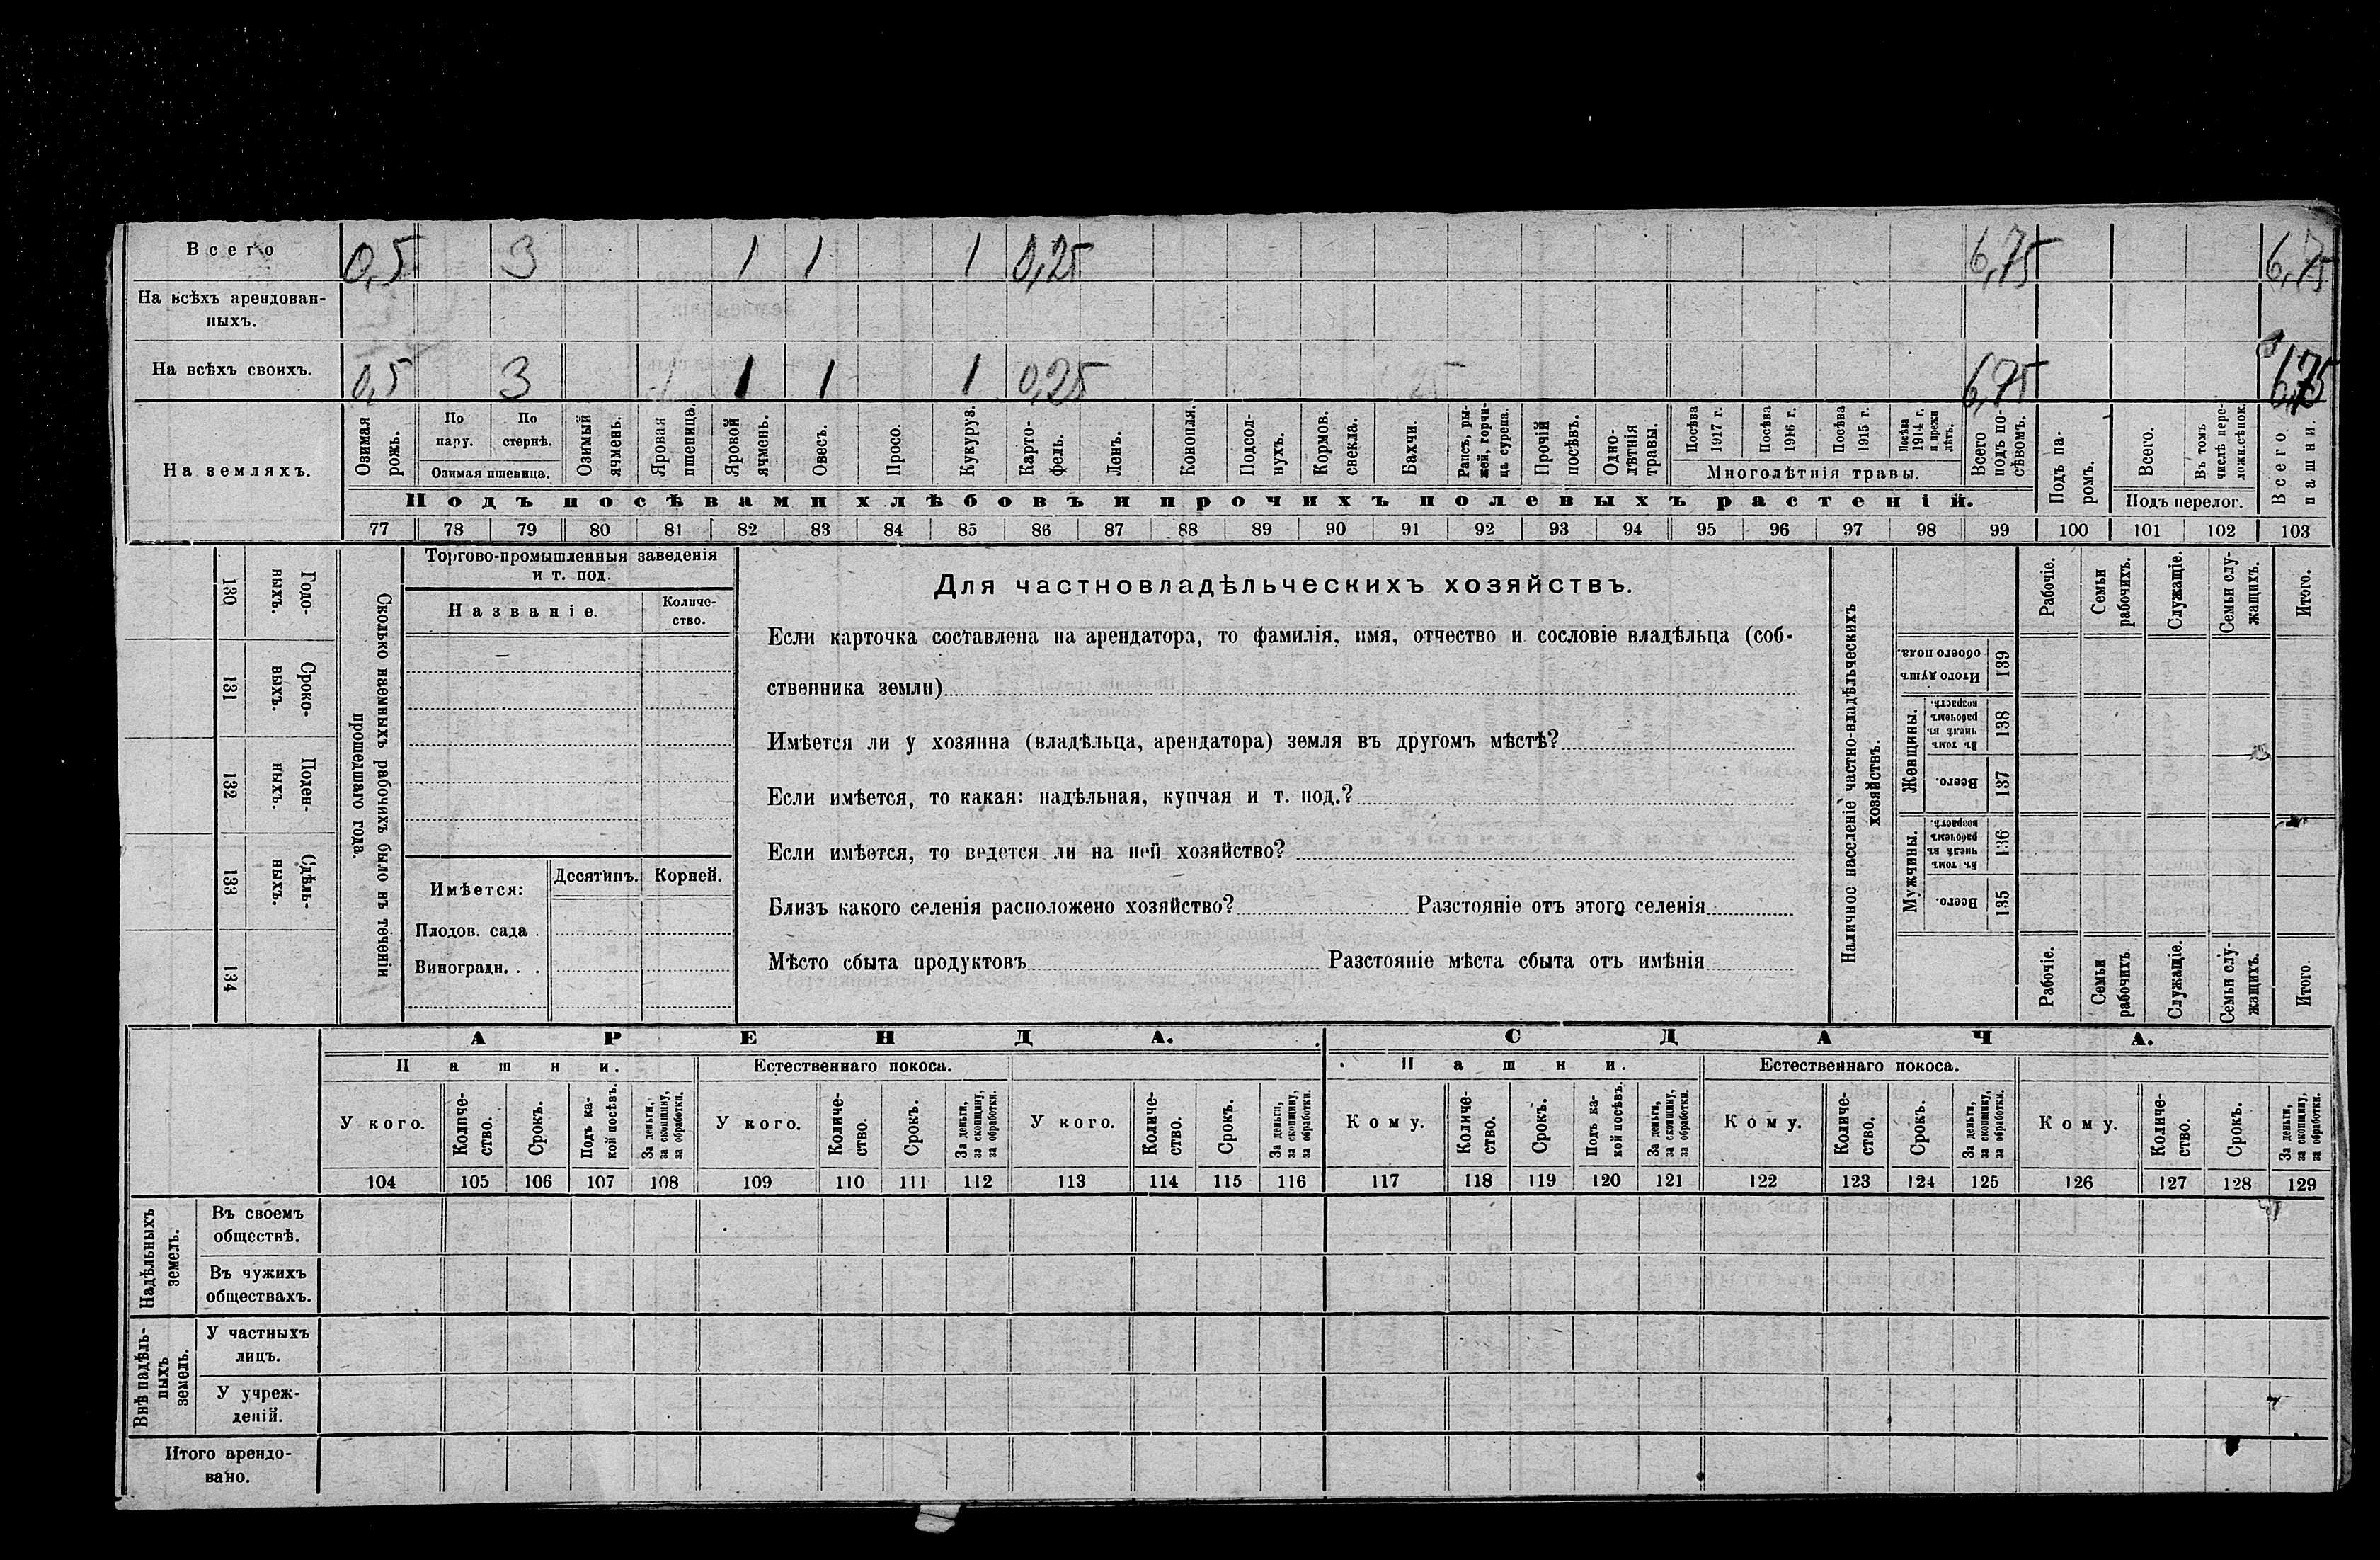 Всего 0,5 3 1 1 1 0,25 6,75 6,75
На всѣхъ арендован-
ныхъ.
На всѣхъ своихъ. 0,5 3 1 1 1 0,25 6,75 6,75
На земляхъ.
Озимая рожь.
По пару.
По стернѣ.
Озимая пшеница.
Озимый ячмень.
Яровая пшеница.
Яровой ячмень.
Овесъ.
Просо.
Кукуруз.
Карто-
фель.
Ленъ.
Конопля.
Подсол-
нухъ.
Кормов. свекла.
Бахчи.
Рапсъ, ры-
жей, горчи-
ца сурепа.
Прочій посѣвъ.
Одно-
лѣтнія травы.
Посѣва 1917 г.
Посѣва 1916 г.
Посѣва 1915 г.
Посѣва 1914 г. и прежн лѣтъ.
Многолѣтнія травы.
Всего подъ по-
сѣвомъ.
Подъ па-
ромъ.
Всего.
Въ томъ числѣ пере-
ложн.сѣнок.
Подъ перелог.
Всего пашни.
Подъ посѣвами хлѣбовъ и прочихъ полевыхъ растеній.
77 78 79 80 81 82 83 84 85 86 87 88 89 90 91 92 93 94 95 96 97 98 99 100 101 102 103
Годо-
выхъ.
130
Сроко-
выхъ.
131
Поден-
ныхъ.
132
Сдѣль-
ныхъ.
133
134
Сколько наемныхъ рабочихъ было въ теченіи
прошедшаго года.
Торгово-промышленныя заведенія
и т. под.
Названіе.
Количе-
ство.
—
Имѣется:
Десятинъ.
Корней.
Плодов. сада .
Виноградн. . .
Для частновладѣльческихъ хозяйствъ.
Если карточка составлена на арендатора, то фамилія, имя, отчество и сословіе владѣльца (соб-
ственника земли)
Имѣется ли у хозяина (владѣльца, арендатора) земля въ другомъ мѣстѣ?
Если имѣется, то какая: надѣльная, купчая и т. под.?
Если имѣется, то ведется ли на ней хозяйство?
Близъ какого селенія расположено хозяйство? Разстояніе отъ этого селенія
Мѣсто сбыта продуктовъ Разстояніе мѣста сбыта отъ имѣнія
Наличное населеніе частно-владѣльческихъ
хозяйствъ.
Рабочіе.
Семьи рабочихъ.
Служащіе.
Семьи слу-
жащихъ.
Итого.
Итого душъ обоего пола.
139
Женщины.
Въ томъ числѣ въ рабочемъ возрастѣ.
138
Всего.
137
Мужчины.
Въ томъ числѣ въ рабочемъ возрастѣ.
136
Всего.
135
Рабочіе.
Семьи рабочихъ.
Служащіе.
Семьи слу-
жащихъ.
Итого.
АРЕНДА. СДАЧА.
Пашни. Естественнаго покоса. Пашни. Естественнаго покоса.
У кого.
Количе-
ство.
Срокъ.
Подъ ка-
кой посѣвъ.
За деньги,
за скопщину,
за обработки.
У кого.
Количе-
ство.
Срокъ.
За деньги,
за скопщину,
за обработки.
У кого.
Количе-
ство.
Срокъ.
За деньги,
за скопщину,
за обработки.
Кому.
Количе-
ство.
Срокъ.
Подъ ка-
кой посѣвъ.
За деньги,
за скопщину,
за обработки.
Кому.
Количе-
ство.
Срокъ.
За деньги,
за скопщину,
за обработки.
Кому.
Количе-
ство.
Срокъ.
За деньги,
за скопщину,
за обработки.
104 105 106 107 108 109 110 111 112 113 114 115 116 117 118 119 120 121 122 123 124 125 126 127 128 129
Надѣльныхъ
земель.
Въ своемъ
обществѣ.
Въ чужихъ
обществахъ.
Внѣ надѣль-
ныхъ
земель.
У частныхъ
лицъ.
У учреж-
деній.
Итого арендо-
вано.